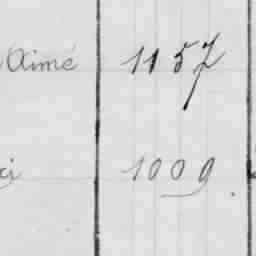 Aimé 1157
1009